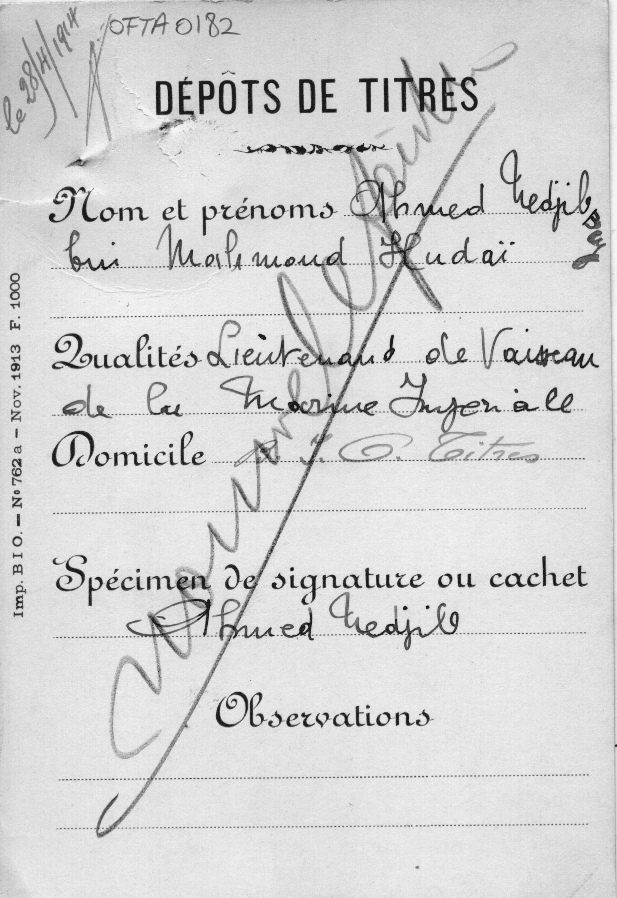 le 28/4/1914
OFTA 0182
DÉPÔTS DE TITRES
Nom et prénoms Ahmed Nedjib bey
bin Mahmoud Hudaï
Qualités Lieutenand de Vaisseau
de la Marine Imperiale
Domicile
Titres
Spécimen de signature ou cachet
Ahmed Nedjib
Observations
Imp. BIO. – Nº 762 a – Nov. 1913 F. 1000